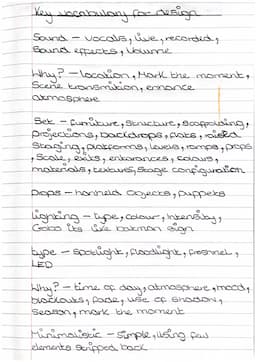 Key vocabulary for design
Sound - vocals, live, recorded,
Sound effects, volume
Why? - location, Mark the moment,
Scene transmition, enhance
atmosphere
Set - furniture, structure, scaffolding,
projections, backdrops, flats, raised
staging, platforms, levels, ramps, props
, Scale, exits, enterances, colours,
materials, textures, stage configuration
props - hanheld objects, puppets
lighting - type, colour, intensity,
Gobo its like batman sign
type - spotlight, floodlight, fresnel,
LED
Why? - time of day, atmosphere, mood,
blackouts, fade, use of shadow,
Season, mark the moment
Minimalistic - Simple, using few
elements stripped back